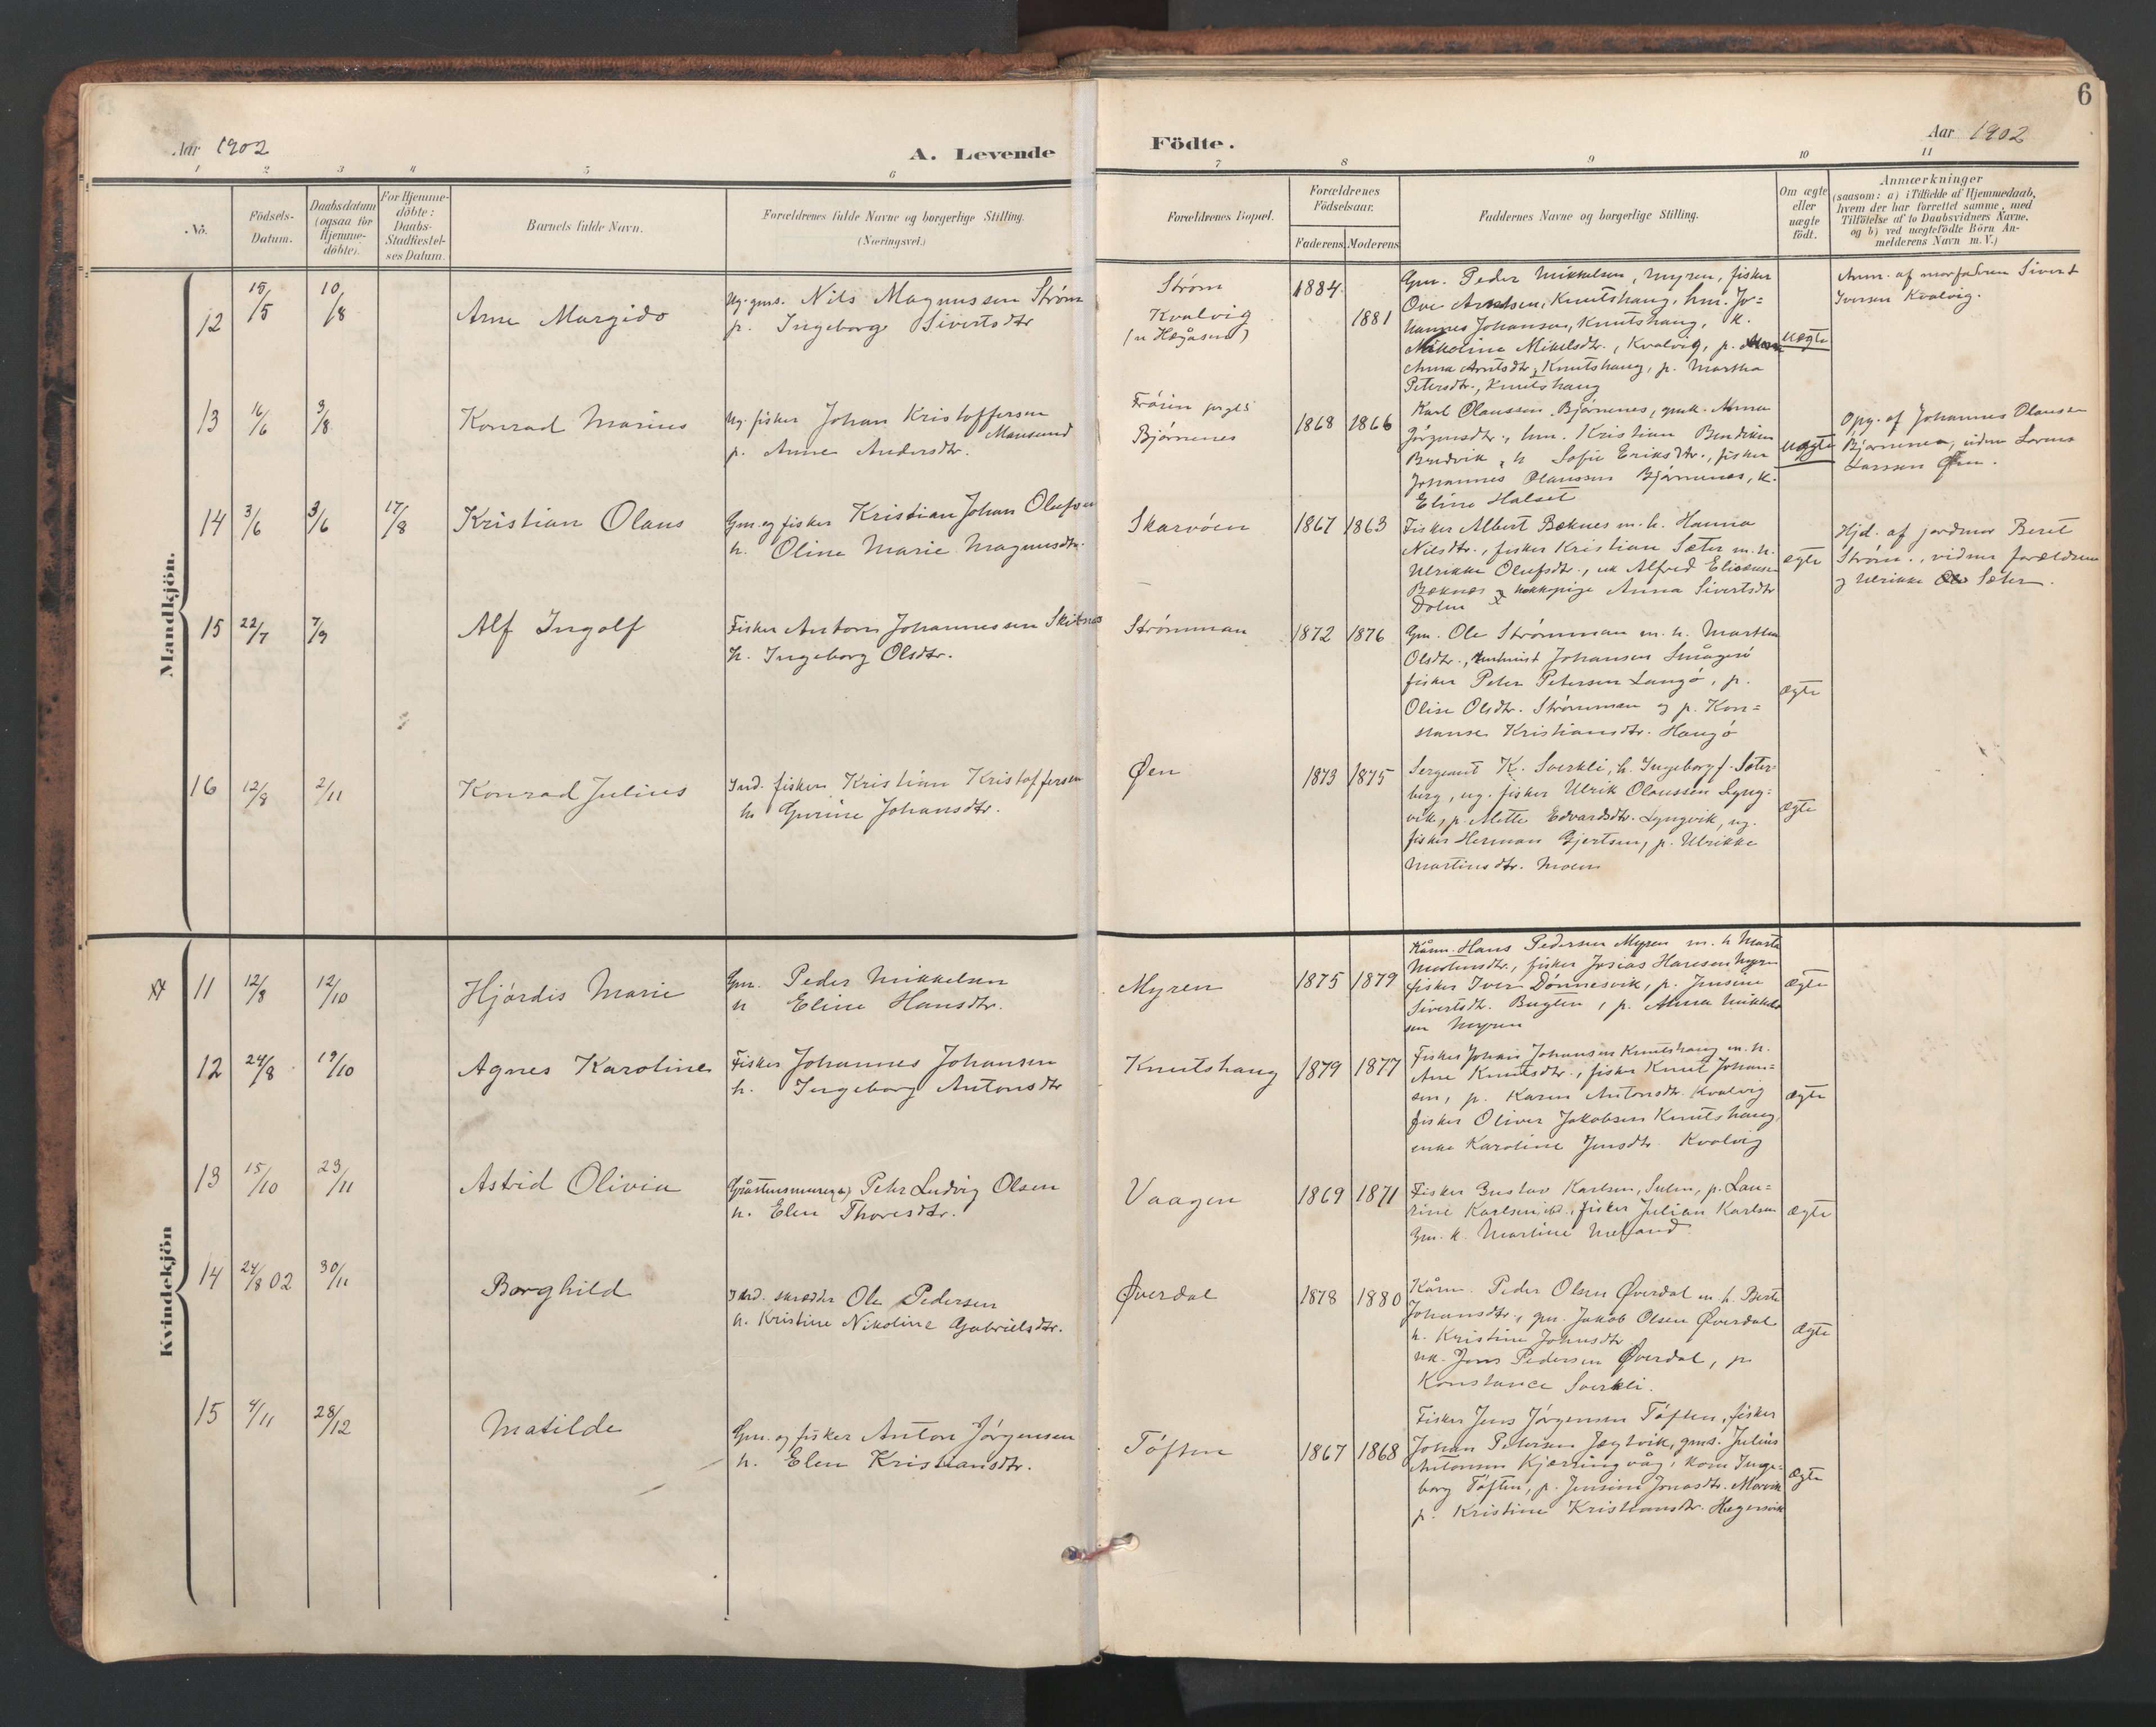 6
Aar 1902
A. Levende
Födte.
Aar 1902
1 2 3 4 5 6 7 8 9 10 11
No.
Födsels-
Datum.
Daabsdatum
(ogsaa for
Hjemme-
döbte).
For Hjemme-
döbte:
Daabs-
Stadfæstel-
ses Datum.
Barnets fulde Navn.
Forældrenes fulde Navne og borgerlige Stilling.
(Næringsvei.)
Forældrenes Bopæl.
Forældrenes
Födselsaar.
Faderens
Moderens
Faddernes Navne og borgerlige Stilling.
Om ægte
eller
uægte
födt.
Anmærkninger
(saasom: a) i Tilfælde af Hjemmedaab,
hvem der har forrettet samme, med
Tilföielse af to Daabsvidners Navne,
og b) ved uægtefödte Börn An-
melderens Navn m. V.)
Mandkjön.
12
15/5
10/8
Arne Margido
Ug. gms. Nils Magnussen Strøm
p. Ingeborg Sivertsdtr
Strøm
Kvalvig
1884
1881
Gm. Peder Mikkelsen, Myren, fisker
Ove Arntsen, Knutshaug, hm. Jo=
hannes Johansen, Knutshaug, k.
Nikoline Mikelsdtr., Kvalvig, p.
Anna Arntsdtr, Knutshaug, p. Martha
Petersdtr., Knutshaug
uægte
Anm. af morfadren Sivert
Iversen Kvalvig.
13
16/6
3/8
Konrad Marius
Ug. fisker Johan Kristoffersen
Mausund
p. Anne Andersdtr.
Bjørnenes
1868
1866
Karl Olaussen Bjørnenes, gmk. Anna
Jörgensdtr., hm. Kristian Bendiksen
Bredvik, h Sofie Eriksdtr., fisker
Johannes Olaussen Bjørnenes, k.
Eline Halset
uægte
Opg. af Johannes Olaussen
Bjørnenes, viden Lorens
Larssen Øen.
14
3/6
3/6
17/8
Kristian Olaus
Gm. og fisker Kristian Johan Olufsen
h. Oline Marie Magnusdtr.
Skarvöen
1867
1863
Fisker Albert Beknes m. h. Hanna
Nilsdtr., fisker Kristian Sæter m. h.
Ulrikke Olufsdtr., uk Alfred
Beknes og kokkepige Anna Sivertsdtr
Dolm
ægte
Hjd. af jordmor Beret
Strøm., vidner forældrene
og Ulrikke Sæter.
15
22/7
7/9
Alf Ingolf
Fisker Anton Johannessen Skitnes
h. Ingeborg Olsdtr.
Strømman
1872
1876
Gm. Ole Strømman m. h. Martha
Olsdtr., Johansen Smågesö
fisker Peter Petersen Langö, p.
Olise Olsdtr. Strømman og p. Kon=
stanse Kristiansdtr. Haugö
ægte
16
12/8
2/11
Konrad Julius
Ind. fisker Kristian Kristoffersen
h. Gurine Johansdtr.
Øen
1873
1875
Sergeant K. Sverkli, h. Ingeborg f. Sæter-
berg, ug. fisker Ulrik Olaussen Lyng=
vik, p. Mette Edvardsdtr. Lyngvik, ug.
fisker Herman Gjertsen, p. Ulrikke
Martinsdtr. Moen
ægte
Kvindekjön
11
12/8
12/10
Hjördis Marie
Gm. Peder Mikkelsen
h Eline Hansdtr.
Myren
1875
1879
Kårm. Hans Pedersen Myren m. h Marta
Mortensdtr., fisker Josias Hansen Myren
fisker Iver Dönnesvik, p. Jensine
Sivertsdtr. Bugten, p. Anna Mikkel
sen Myren
ægte
12
24/8
19/10
Agnes Karoline
Fisker Johannes Johansen
h. Ingeborg Antonsdtr
Knutshaug
1879
1877
Fisker Johan Johansen Knutshaug m. h.
Ane Knutsdtr., fisker Knut Johan=
sen, p. Karen Antonsdtr. Kvalvig
fisker Oliver Jakobsen Knutshaug
enke Karoline Jensdtr. Kvalvig
ægte
13
15/10
23/11
Astrid Olivia
Gråstensmurer Petr Ludvig Olsen
h. Elen Thoresdtr.
Vaagen
1869
1871
Fisker Gustav Karlsen, Sulen, p. Lau=
rine Karlsen ibd., fisker Julian Karlsen
Gm. k. Martine Melland
ægte
14
24/8 02
30/11
Borghild
Ind. skrædder Ole Pedersen
h. Kristine Nikoline Gabrielsdtr.
Øverdal
1878
1880
Kårm. Peder Olsen Øverdal m. h. Berte
Johansdtr., gm. Jakob Olsen Øverdal
h. Kristine Johnsdtr
uk. Jens Pedersen Øverdal, p
Konstance Sverkli.
Ægte
15
4/11
28/12
Matilde
Gm. og fisker Anton Jörgensen
h. Elen Kristiansdtr.
Töften
1867
1868
Fisker Jens Jörgensen Töften, fisker
Johan Petersen Jægtvik, gms. Julius
Antonsen Kjerringvåg, kone Inge=
borg Töften, p. Jensine Jonasdtr. Morvik
p. Kristine Kristiansdtr. Hegervik
Ægte